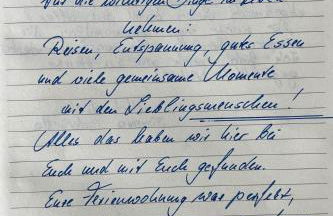 die wichtigen Dinge im Leben
nehmen:
Reisen, Entspannung, gutes Essen
und viele gemeinsame Momente
mit den Lieblingsmenschen!
Alles das haben wir hier bei
Euch und mit Euch gefunden.
Eure Ferienwohnung war perfekt,